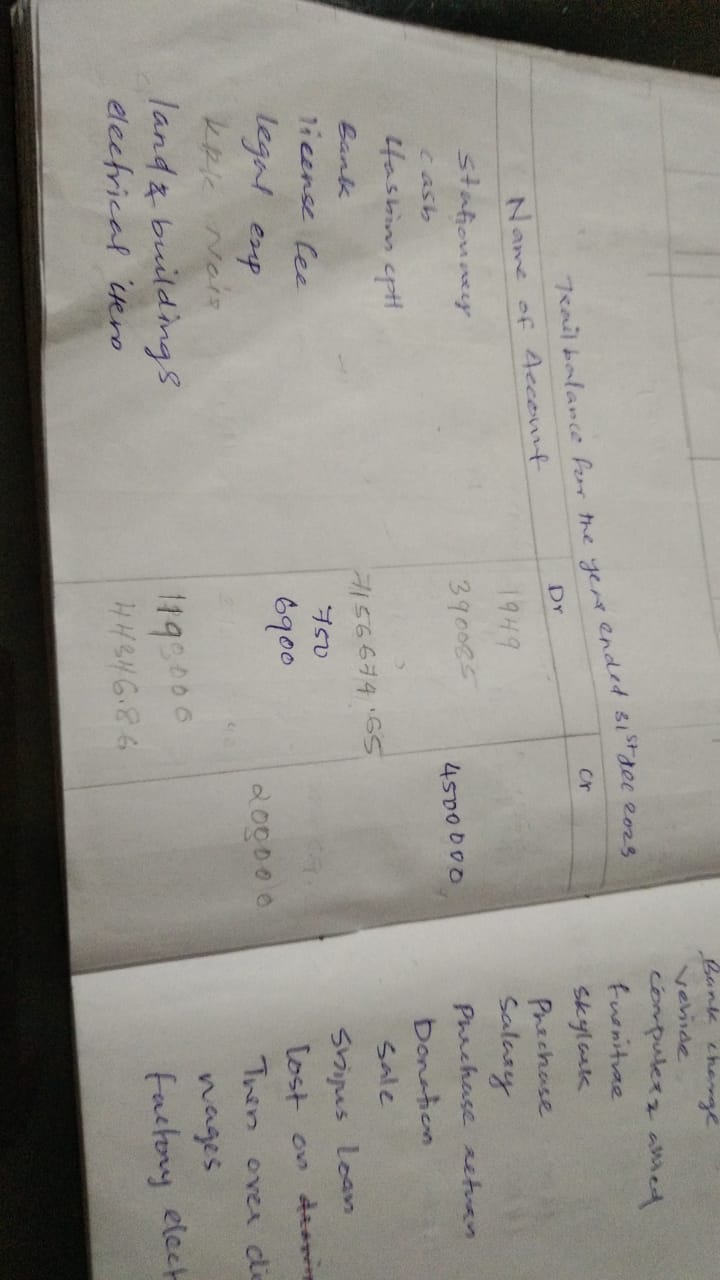 Trail balance for the year ended 31st dec 2023
Name of Account Dr Cr
Stationary 1949
cash 390085
Hashim cptl 4500000
Bank 7156674.65
license fee 750
legal exp 6900
KRK Nair 200000
land & buildings 1190000
electrical items
Bank charge
vehicle
computer &
furnitrae
skylark
Prechase
Salary
Purchase return
Donation
Sale
Shijus loan
Lost on
Turn over
wages
factory elect